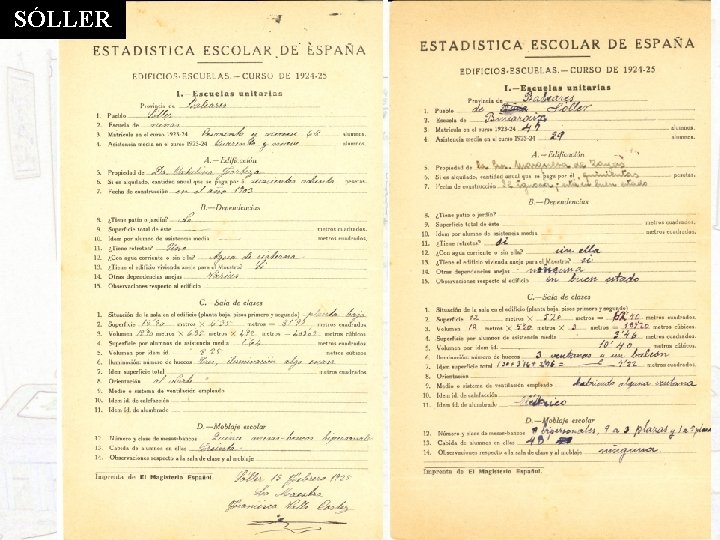 SÓLLER
ESTADISTICA ESCOLAR DE ESPAÑA
EDIFICIOS-ESCUELAS.—CURSO DE 1924-25
I.—Escuelas unitarias
Provincia de Baleares
1. Pueblo Soller
2. Escuela de niñas
3. Matrícula en el curso 1923-24 alumnos.
4. Asistencia media en el curso 1923-24 Cuarenta y nueve alumnos.
A.—Edificación
5. Propiedad de Dª Catalina
6. Si es alquilado, cantidad anual que se paga por él pesetas.
7. Fecha de construcción en el año 1903
B.—Dependencias
8. ¿Tiene patio o jardín?
9. Superficie total de éste metros cuadrados.
10. Idem por alumno de asistencia media metros cuadrados.
11. ¿Tiene retretes? Uno
12. ¿Con agua corriente o sin ella? Agua de cisterna
13. ¿Tiene el edificio vivienda aneja para el Maestro? Si
14. Otras dependencias anejas
15. Observaciones respecto al edificio
C.—Sala de clases
1. Situación de la sala en el edificio (planta baja, pisos primero y segundo) planta baja
2. Superficie metros × metros = metros cuadrados
3. Volumen metros × metros × metros = metros cúbicos.
4. Superficie por alumnos de asistencia media metros cuadrados.
5. Volumen por id. 8'25 metros cúbicos
6. Iluminación: número de huecos Tres, iluminación algo escasa
7. Idem superficie total metros cuadrados
8. Orientación al Norte
9. Medio o sistema de ventilación empleado
10. Idem id. de calefacción
11. Idem id. de alumbrado
D.—Moblaje escolar
12. Número y clase de mesas-bancos Quince mesas-bancos bipersonales
13. Cabida de alumnos en ellas Treinta
14. Observaciones respecto a la sala de clase y al moblaje
Imprenta de El Magisterio Español. Soller 15 Febrero 1925
La Maestra
Francisca
ESTADISTICA ESCOLAR DE ESPAÑA
EDIFICIOS-ESCUELAS.—CURSO DE 1924-25
I.—Escuelas unitarias
Provincia de Baleares
1. Pueblo de Soller
2. Escuela de Biniaraix
3. Matrícula en el curso 1923-24 47 alumnos.
4. Asistencia media en el curso 1923-24 29 alumnos.
A.—Edificación
5. Propiedad de la
6. Si es alquilado, cantidad anual que se paga por él quinientas pesetas.
7. Fecha de construcción se ignora; está en buen estado
B.—Dependencias
8. ¿Tiene patio o jardín?
9. Superficie total de éste metros cuadrados.
10. Idem por alumno de asistencia media metros cuadrados.
11. ¿Tiene retretes? si
12. ¿Con agua corriente o sin ella? sin ella
13. ¿Tiene el edificio vivienda aneja para el Maestro? si
14. Otras dependencias anejas ninguna
15. Observaciones respecto al edificio en buen estado
C.—Sala de clases
1. Situación de la sala en el edificio (planta baja, pisos primero y segundo)
2. Superficie 12 metros × 5'20 metros = metros cuadrados
3. Volumen 12 metros × 5'20 metros × 3 metros = metros cúbicos.
4. Superficie por alumnos de asistencia media metros cuadrados.
5. Volumen por id. metros cúbicos.
6. Iluminación: número de huecos 3 ventanas a un balcón
7. Idem superficie total metros cuadrados.
8. Orientación
9. Medio o sistema de ventilación empleado habriendo alguna ventana
10. Idem id. de calefacción
11. Idem id. de alumbrado
D.—Moblaje escolar
12. Número y clase de mesas-bancos
13. Cabida de alumnos en ellas 48
14. Observaciones respecto a la sala de clase y al moblaje ninguna
Imprenta de El Magisterio Español.